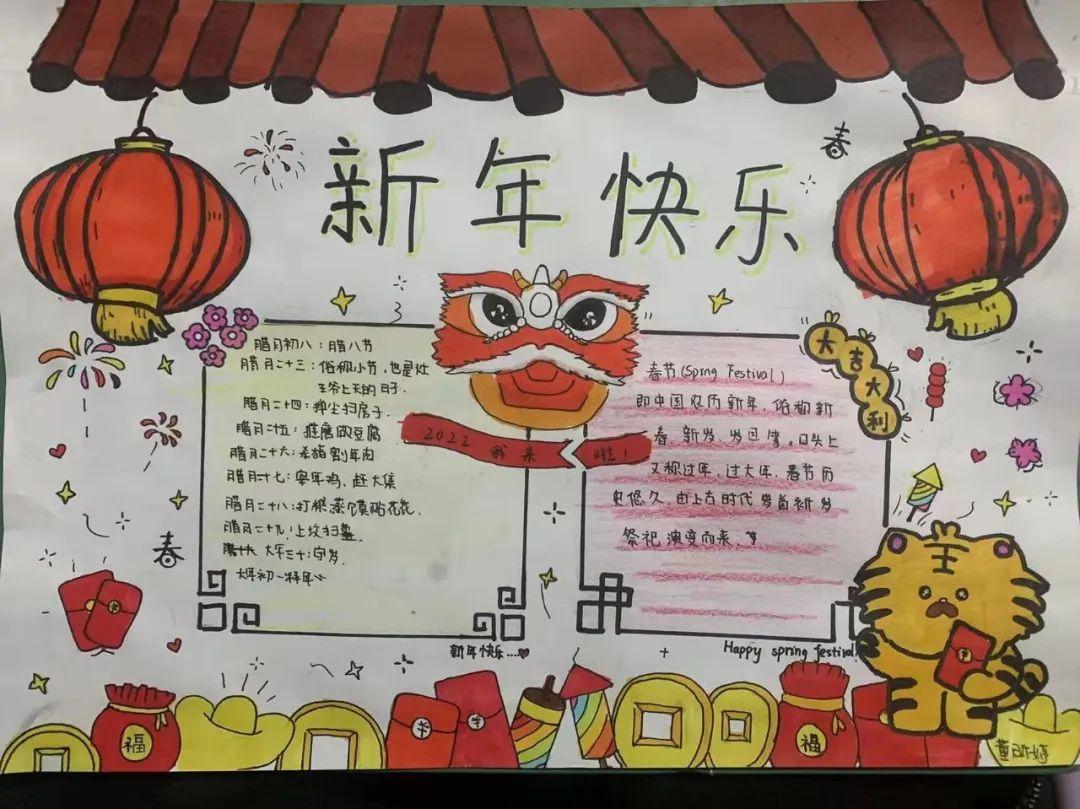 新年快乐
春
大吉大利
腊月初八：腊八节
腊月二十三：俗称小节，也是灶
王爷上天的日子.
腊月二十四：掸尘扫房子.
腊月二十五：推磨做豆腐
腊月二十六：杀猪割年肉
腊月十七：宰年鸡、赶大集
腊月二十八：打糕蒸馍贴花花.
腊月二十九：上坟扫墓.
大年三十：守岁.
大年初一拜年
2022 我来啦！
春节(Spring Festival)
即中国农历新年，俗称新
春、新岁、岁旦等，口头上
又称过年、过大年，春节历
史悠久，由上古时代岁首新岁
祭祀演变而来.
春
新年快乐...
Happy spring festival!
福
福